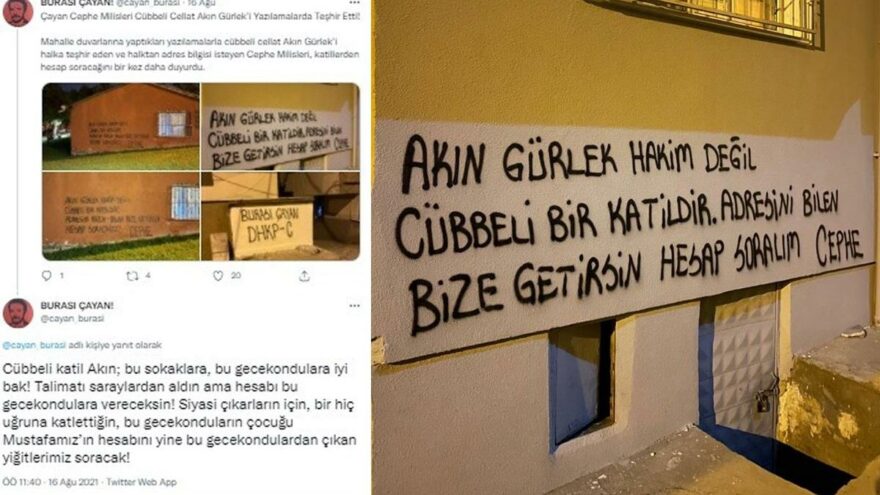 BURASI ÇAYAN! @cayan_burasi · 16 Ağu
Çayan Cephe Milisleri Cübbeli Cellat Akın Gürlek'i Yazılamalarda Teşhir Etti!
Mahalle duvarlarına yaptıkları yazılamalarla cübbeli cellat Akın Gürlek'i
halka teşhir eden ve halktan adres bilgisi isteyen Cephe Milisleri, katillerden
hesap soracağını bir kez daha duyurdu.
AKIN GÜRLEK HAKİM DEĞİL
CÜBBELİ BİR KATİLDİR. ADRESİNİ BİLEN
BİZE GETİRSİN HESAP SORALIM CEPHE
BURASI ÇAYAN
DHKP-C
1 4 20
BURASI ÇAYAN!
@cayan_burasi
@cayan_burasi adlı kişiye yanıt olarak
Cübbeli katil Akın; bu sokaklara, bu gecekondulara iyi
bak! Talimatı saraylardan aldın ama hesabı bu
gecekondulara vereceksin! Siyasi çıkarların için, bir hiç
uğruna katlettiğin, bu gecekonduların çocuğu
Mustafamız'ın hesabını yine bu gecekondulardan çıkan
yiğitlerimiz soracak!
ÖÖ 11:40 · 16 Ağu 2021 · Twitter Web App
AKIN GÜRLEK HAKİM DEĞİL
CÜBBELİ BİR KATİLDİR. ADRESİNİ BİLEN
BİZE GETİRSİN HESAP SORALIM CEPHE